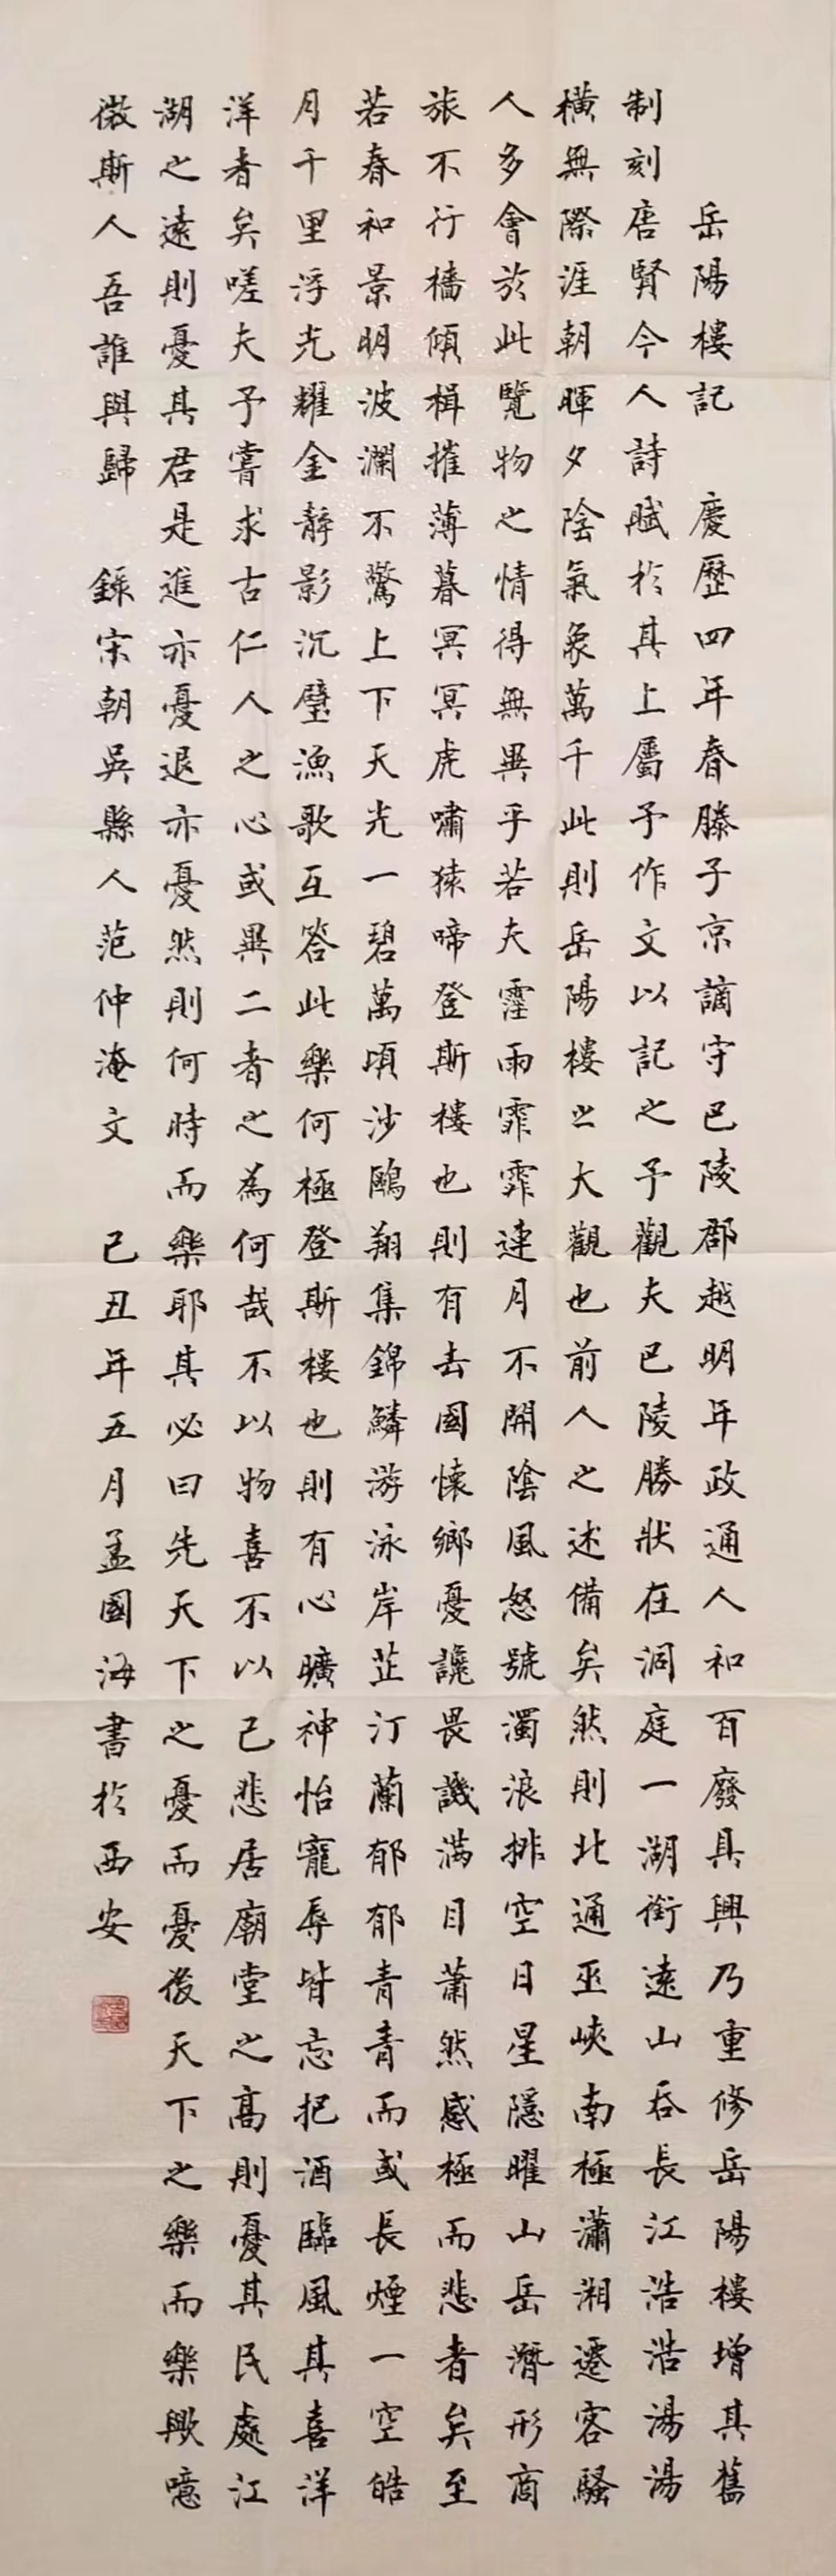 岳陽樓記 慶歷四年春滕子京謫守巴陵郡越明年政通人和百廢具興乃重修岳陽樓增其舊
制刻唐賢今人詩賦於其上屬予作文以記之予觀夫巴陵勝狀在洞庭一湖銜遠山吞長江浩浩湯湯
橫無際涯朝暉夕陰氣象萬千此則岳陽樓之大觀也前人之述備矣然則北通巫峽南極瀟湘遷客騷
人多會於此覽物之情得無異乎若夫霪雨霏霏連月不開陰風怒號濁浪排空日星隱曜山岳潛形商
旅不行檣傾楫摧薄暮冥冥虎嘯猿啼登斯樓也則有去國懷鄉憂讒畏譏滿目蕭然感極而悲者矣至
若春和景明波瀾不驚上下天光一碧萬頃沙鷗翔集錦鱗游泳岸芷汀蘭郁郁青青而或長煙一空皓
月千里浮光耀金靜影沉璧漁歌互答此樂何極登斯樓也則有心曠神怡寵辱皆忘把酒臨風其喜洋
洋者矣嗟夫予嘗求古仁人之心或異二者之為何哉不以物喜不以己悲居廟堂之高則憂其民處江
湖之遠則憂其君是進亦憂退亦憂然則何時而樂耶其必曰先天下之憂而憂後天下之樂而樂歟噫
微斯人吾誰與歸 錄宋朝吳縣人范仲淹文 己丑年五月孟國海書於西安